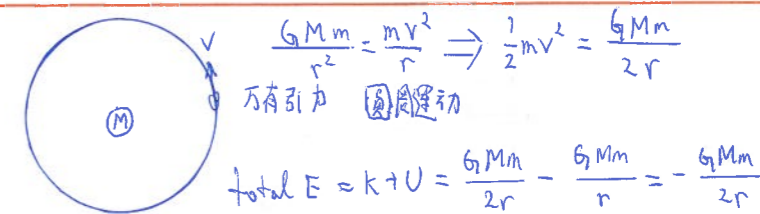 V
GMm/r² = mv²/r ⟹ 1/2 mv² = GMm/2r
万有引力 圆周运动
M
total E = K+U = GMm/2r - GMm/r = - GMm/2r